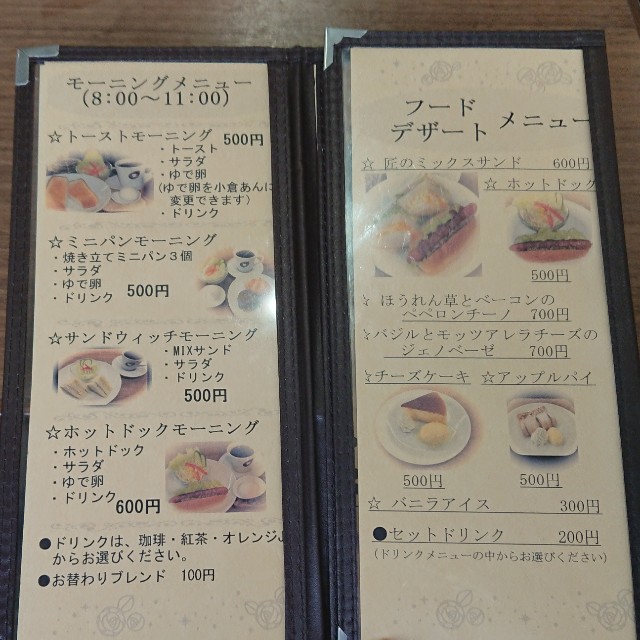 モーニングメニュー
(8:00～11:00)
☆トーストモーニング 500円
・トースト
・サラダ
・ゆで卵
(ゆで卵を小倉あんに
変更できます)
・ドリンク
☆ミニパンモーニング
・焼き立てミニパン３個
・サラダ
・ゆで卵
・ドリンク 500円
☆サンドウィッチモーニング
・MIXサンド
・サラダ
・ドリンク
500円
☆ホットドックモーニング
・ホットドック
・サラダ
・ゆで卵
・ドリンク
600円
●ドリンクは、珈琲・紅茶・オレンジJ
からお選びください。
●お替わりブレンド 100円
フード
デザート メニュー
☆ 匠のミックスサンド 600円
☆ ホットドック
500円
☆ ほうれん草とベーコンの
ペペロンチーノ 700円
☆バジルとモッツアレラチーズの
ジェノベーゼ 700円
☆チーズケーキ ☆アップルパイ
500円 500円
☆ バニラアイス 300円
●セットドリンク 200円
(ドリンクメニューの中からお選びください)